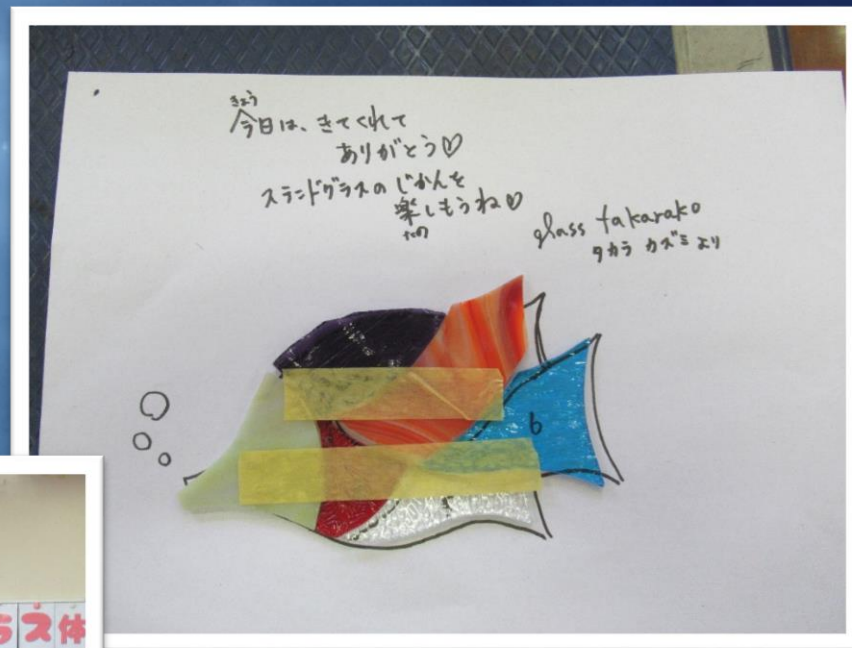 きょう
今日は、きてくれて
ありがとう♡
ステンドグラスの じかんを
楽しもうね♡
たの
glass takarako
タカラ カズミ より
6
ラス体